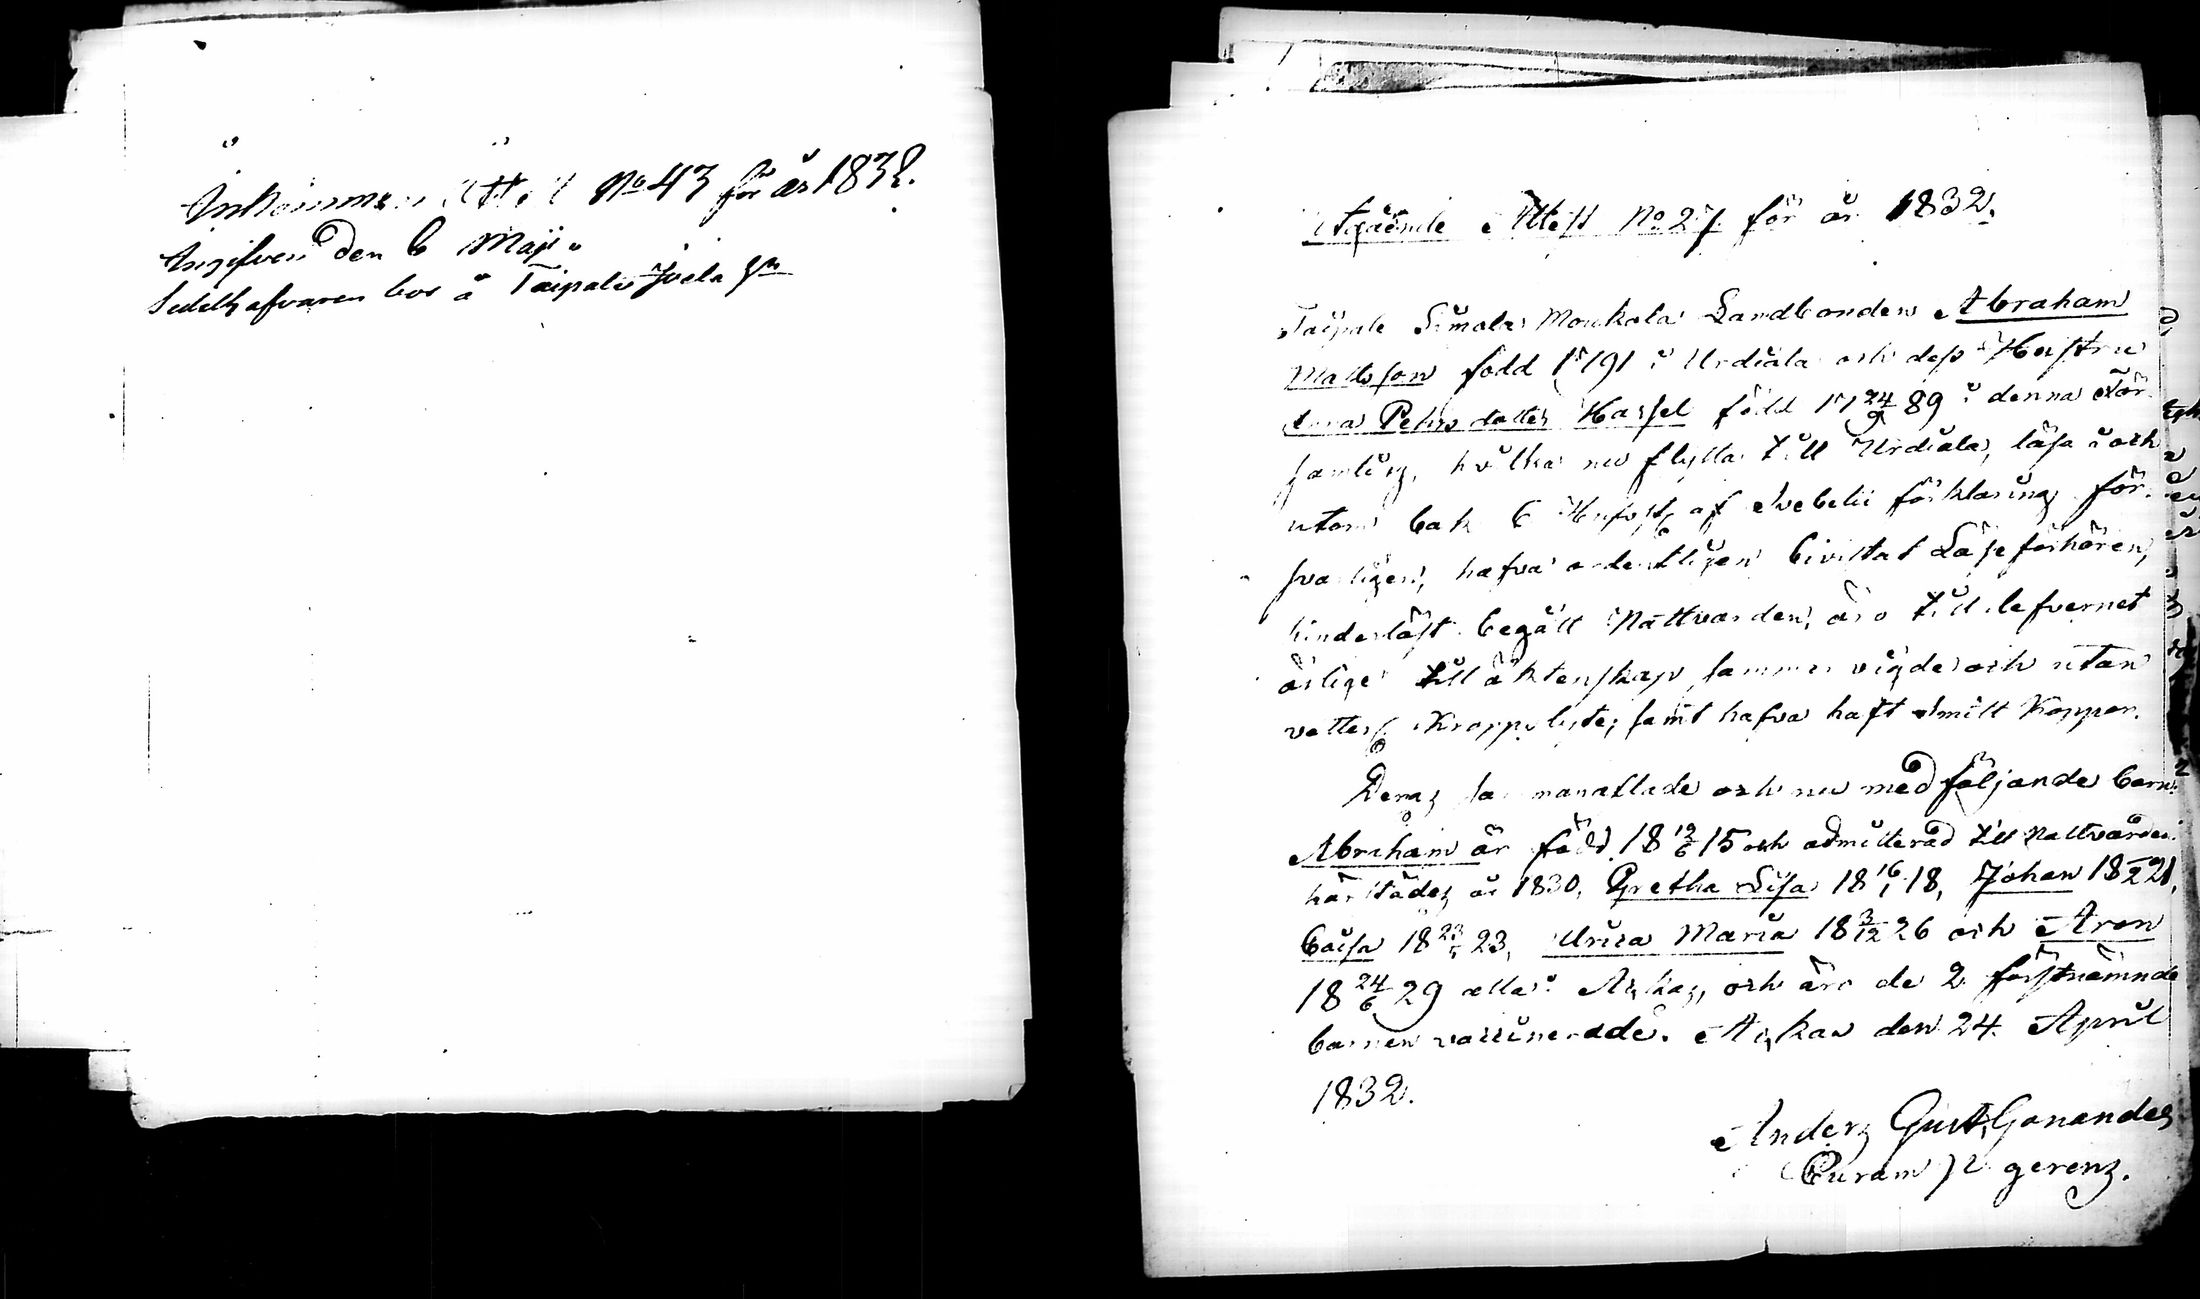 Inkommen Attest No 43 för år 1832.
Angifven den 6 Maji.
Sedelhafvaren bor å Taipale Jvela
Utgående Attest No 27 för år 1832.
Taipale Simola Moukola Landbonden Abraham
Mattsson född 1791 i Urdiala och dess Hustru
Petersdotter Hassel född 17 24/9 89 i denna För
samling, hvilka nu flytta till Urdiala, läsa i och
utom bok 6 Hufvst. af Svebelii förklaring för-
svarligen, hafva ordentligen bivistat Läseförhören,
hinderslöst begått Nattvarden, äro till lefvernet
ärlige till äktenskap samman vigde och utan
vetterl. Kroppslyte, samt hafva haft Smitt Koppor.
Deras sammanaflade och nu medföljande barn:
Abraham är född 18 12/6 15 och admitterad till Nattvarden
härstädes år 1830, Gretha Lisa 18 16/1 18, Johan 18 21,
Caisa 18 23, Ulrica Maria 18 3/12 26 och Aron
18 24/6 29 alla i och äro de 2 förstnämnde
barnen vaccinerade. den 24 April
1832.
Anders Gust. Ganander
Curam P. gerens.